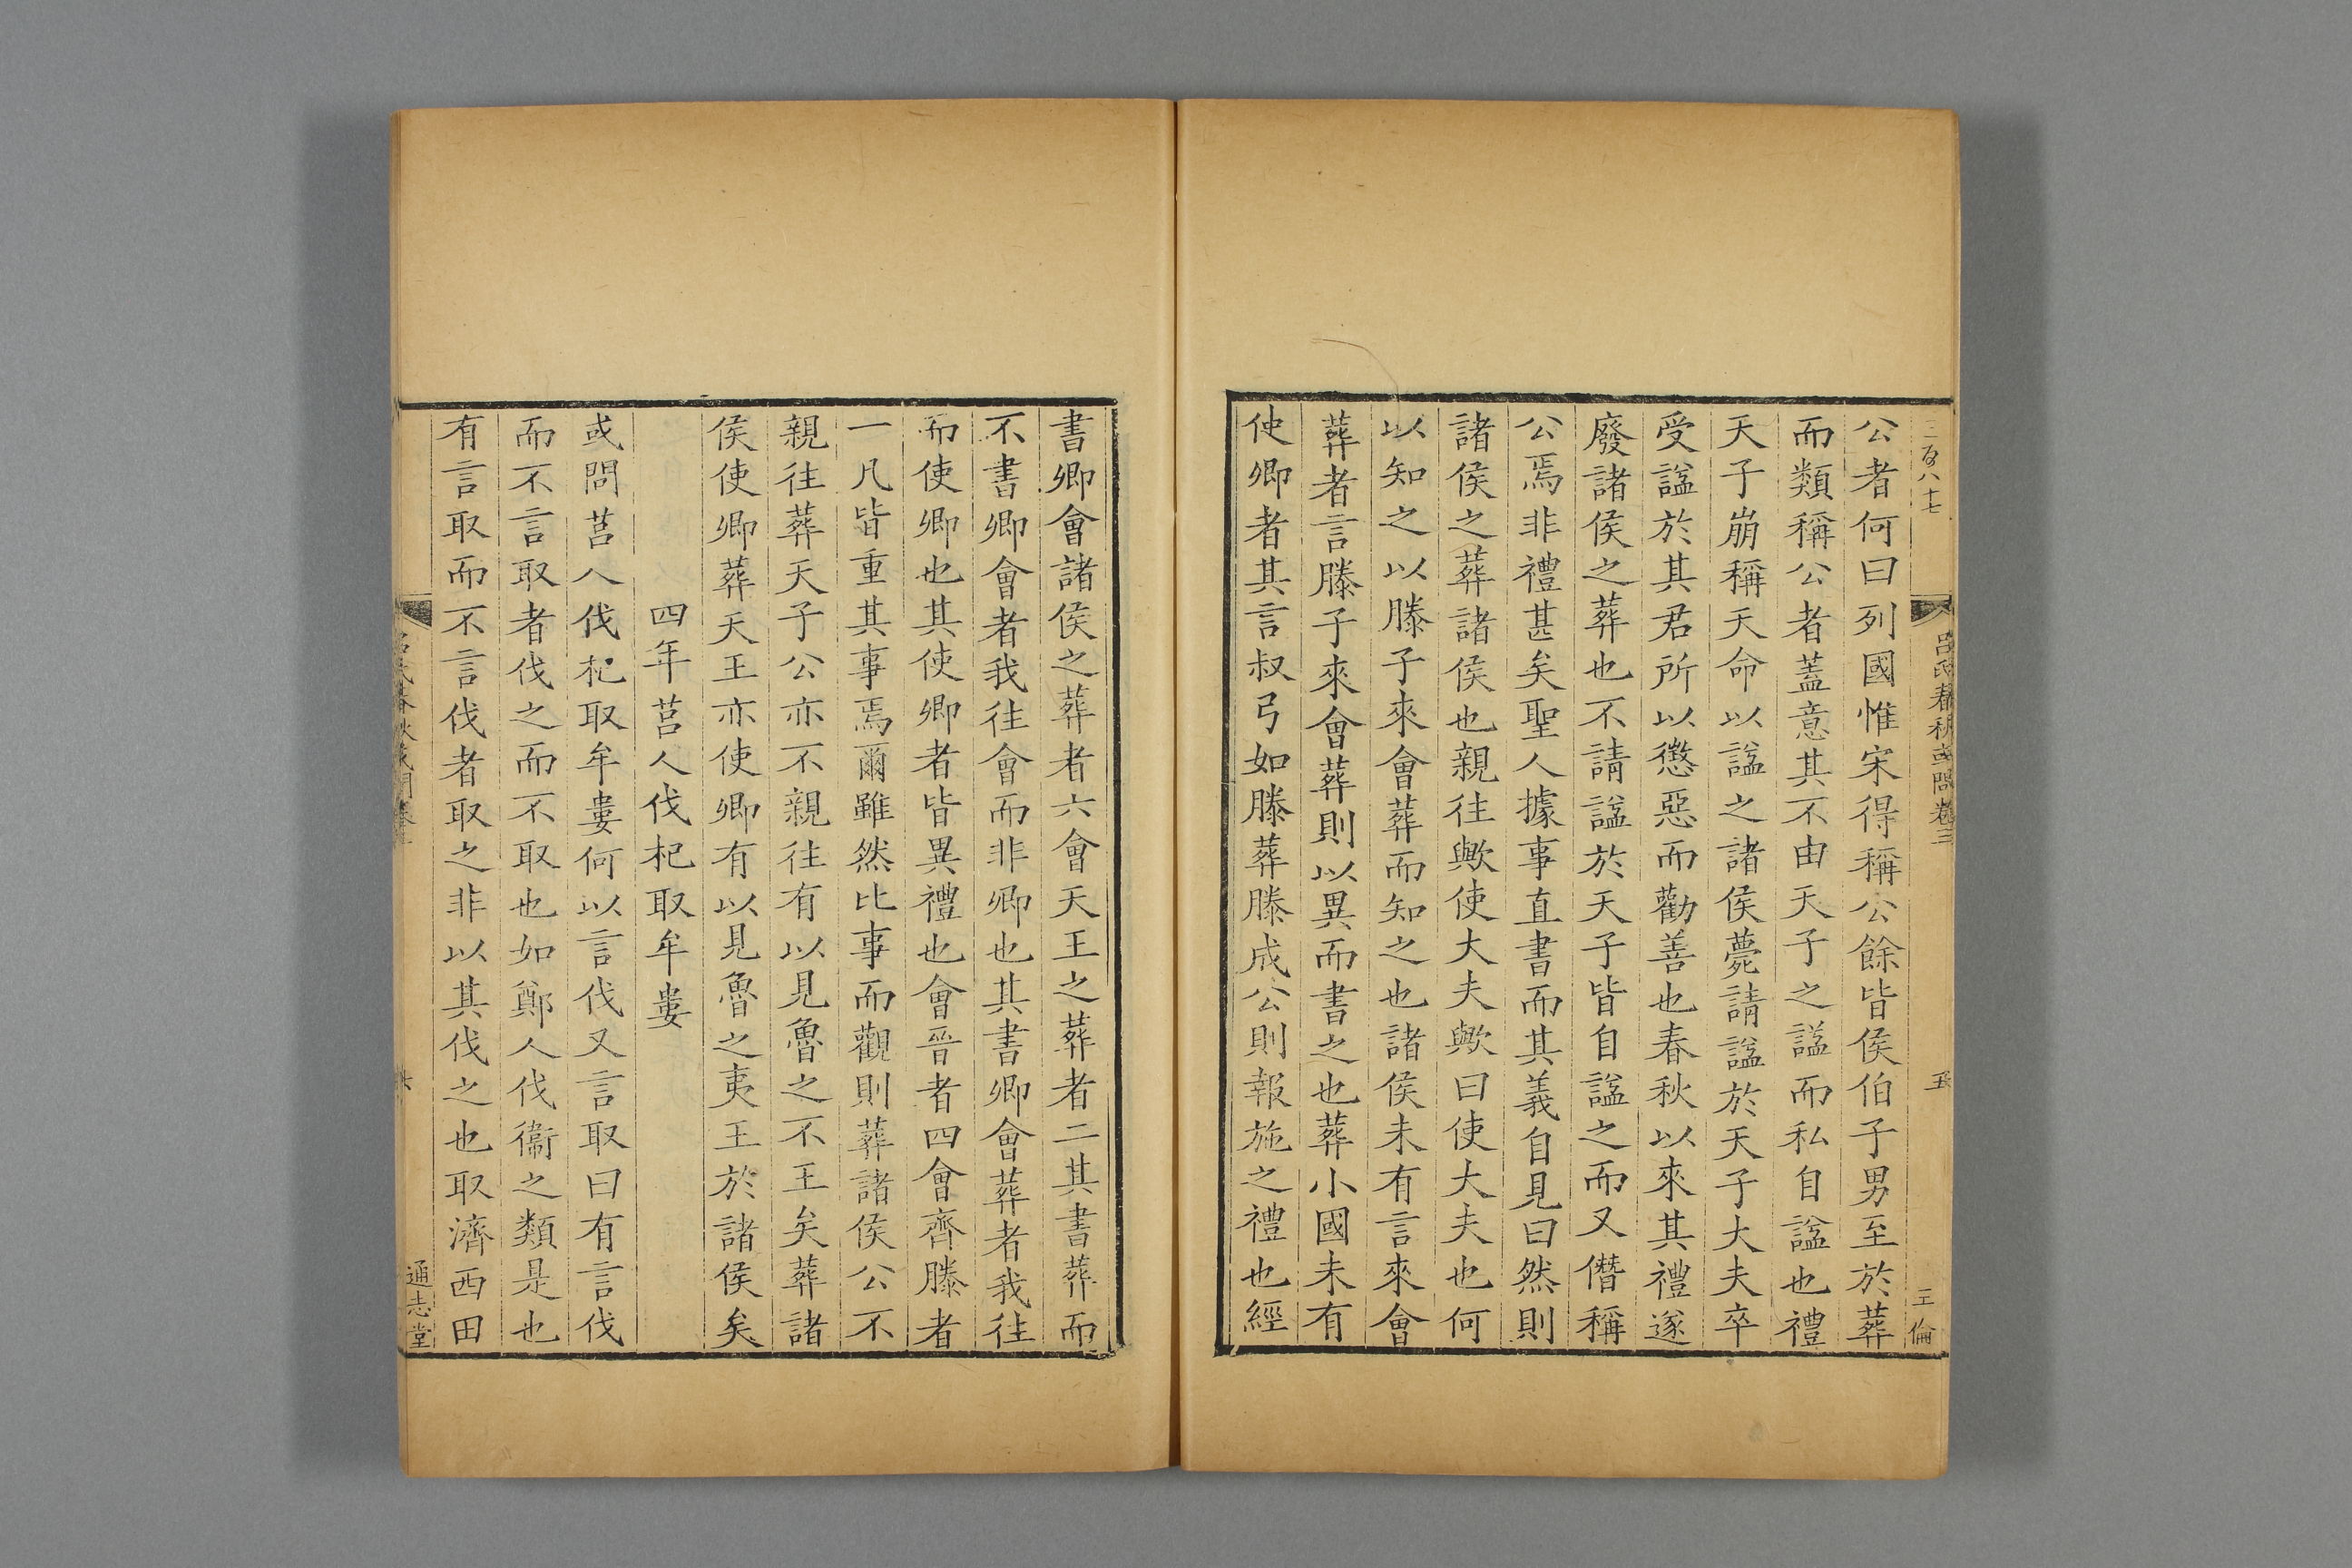 三百八十七
呂氏春秋或問卷三
五
王倫
公者何曰列國惟宋得稱公餘皆侯伯子男至於葬
而類稱公者蓋意其不由天子之諡而私自諡也禮
天子崩稱天命以諡之諸侯薨請諡於天子大夫卒
受諡於其君所以懲惡而勸善也春秋以來其禮遂
廢諸侯之葬也不請諡於天子皆自諡之而又僭稱
公焉非禮甚矣聖人據事直書而其義自見曰然則
諸侯之葬諸侯也親往歟使大夫歟曰使大夫也何
以知之以滕子來會葬而知之也諸侯未有言來會
葬者言滕子來會葬則以異而書之也葬小國未有
使卿者其言叔弓如滕葬滕成公則報施之禮也經
書卿會諸侯之葬者六會天王之葬者二其書葬而
不書卿會者我往會而非卿也其書卿會葬者我往
而使卿也其使卿者皆異禮也會晉者四會齊滕者
一凡皆重其事焉爾雖然比事而觀則葬諸侯公不
親往葬天子公亦不親往有以見魯之不王矣葬諸
侯使卿葬天王亦使卿有以見魯之夷王於諸侯矣
四年莒人伐杞取牟婁
或問莒人伐杞取牟婁何以言伐又言取曰有言伐
而不言取者伐之而不取也如鄭人伐衞之類是也
有言取而不言伐者取之非以其伐之也取濟西田
通志堂